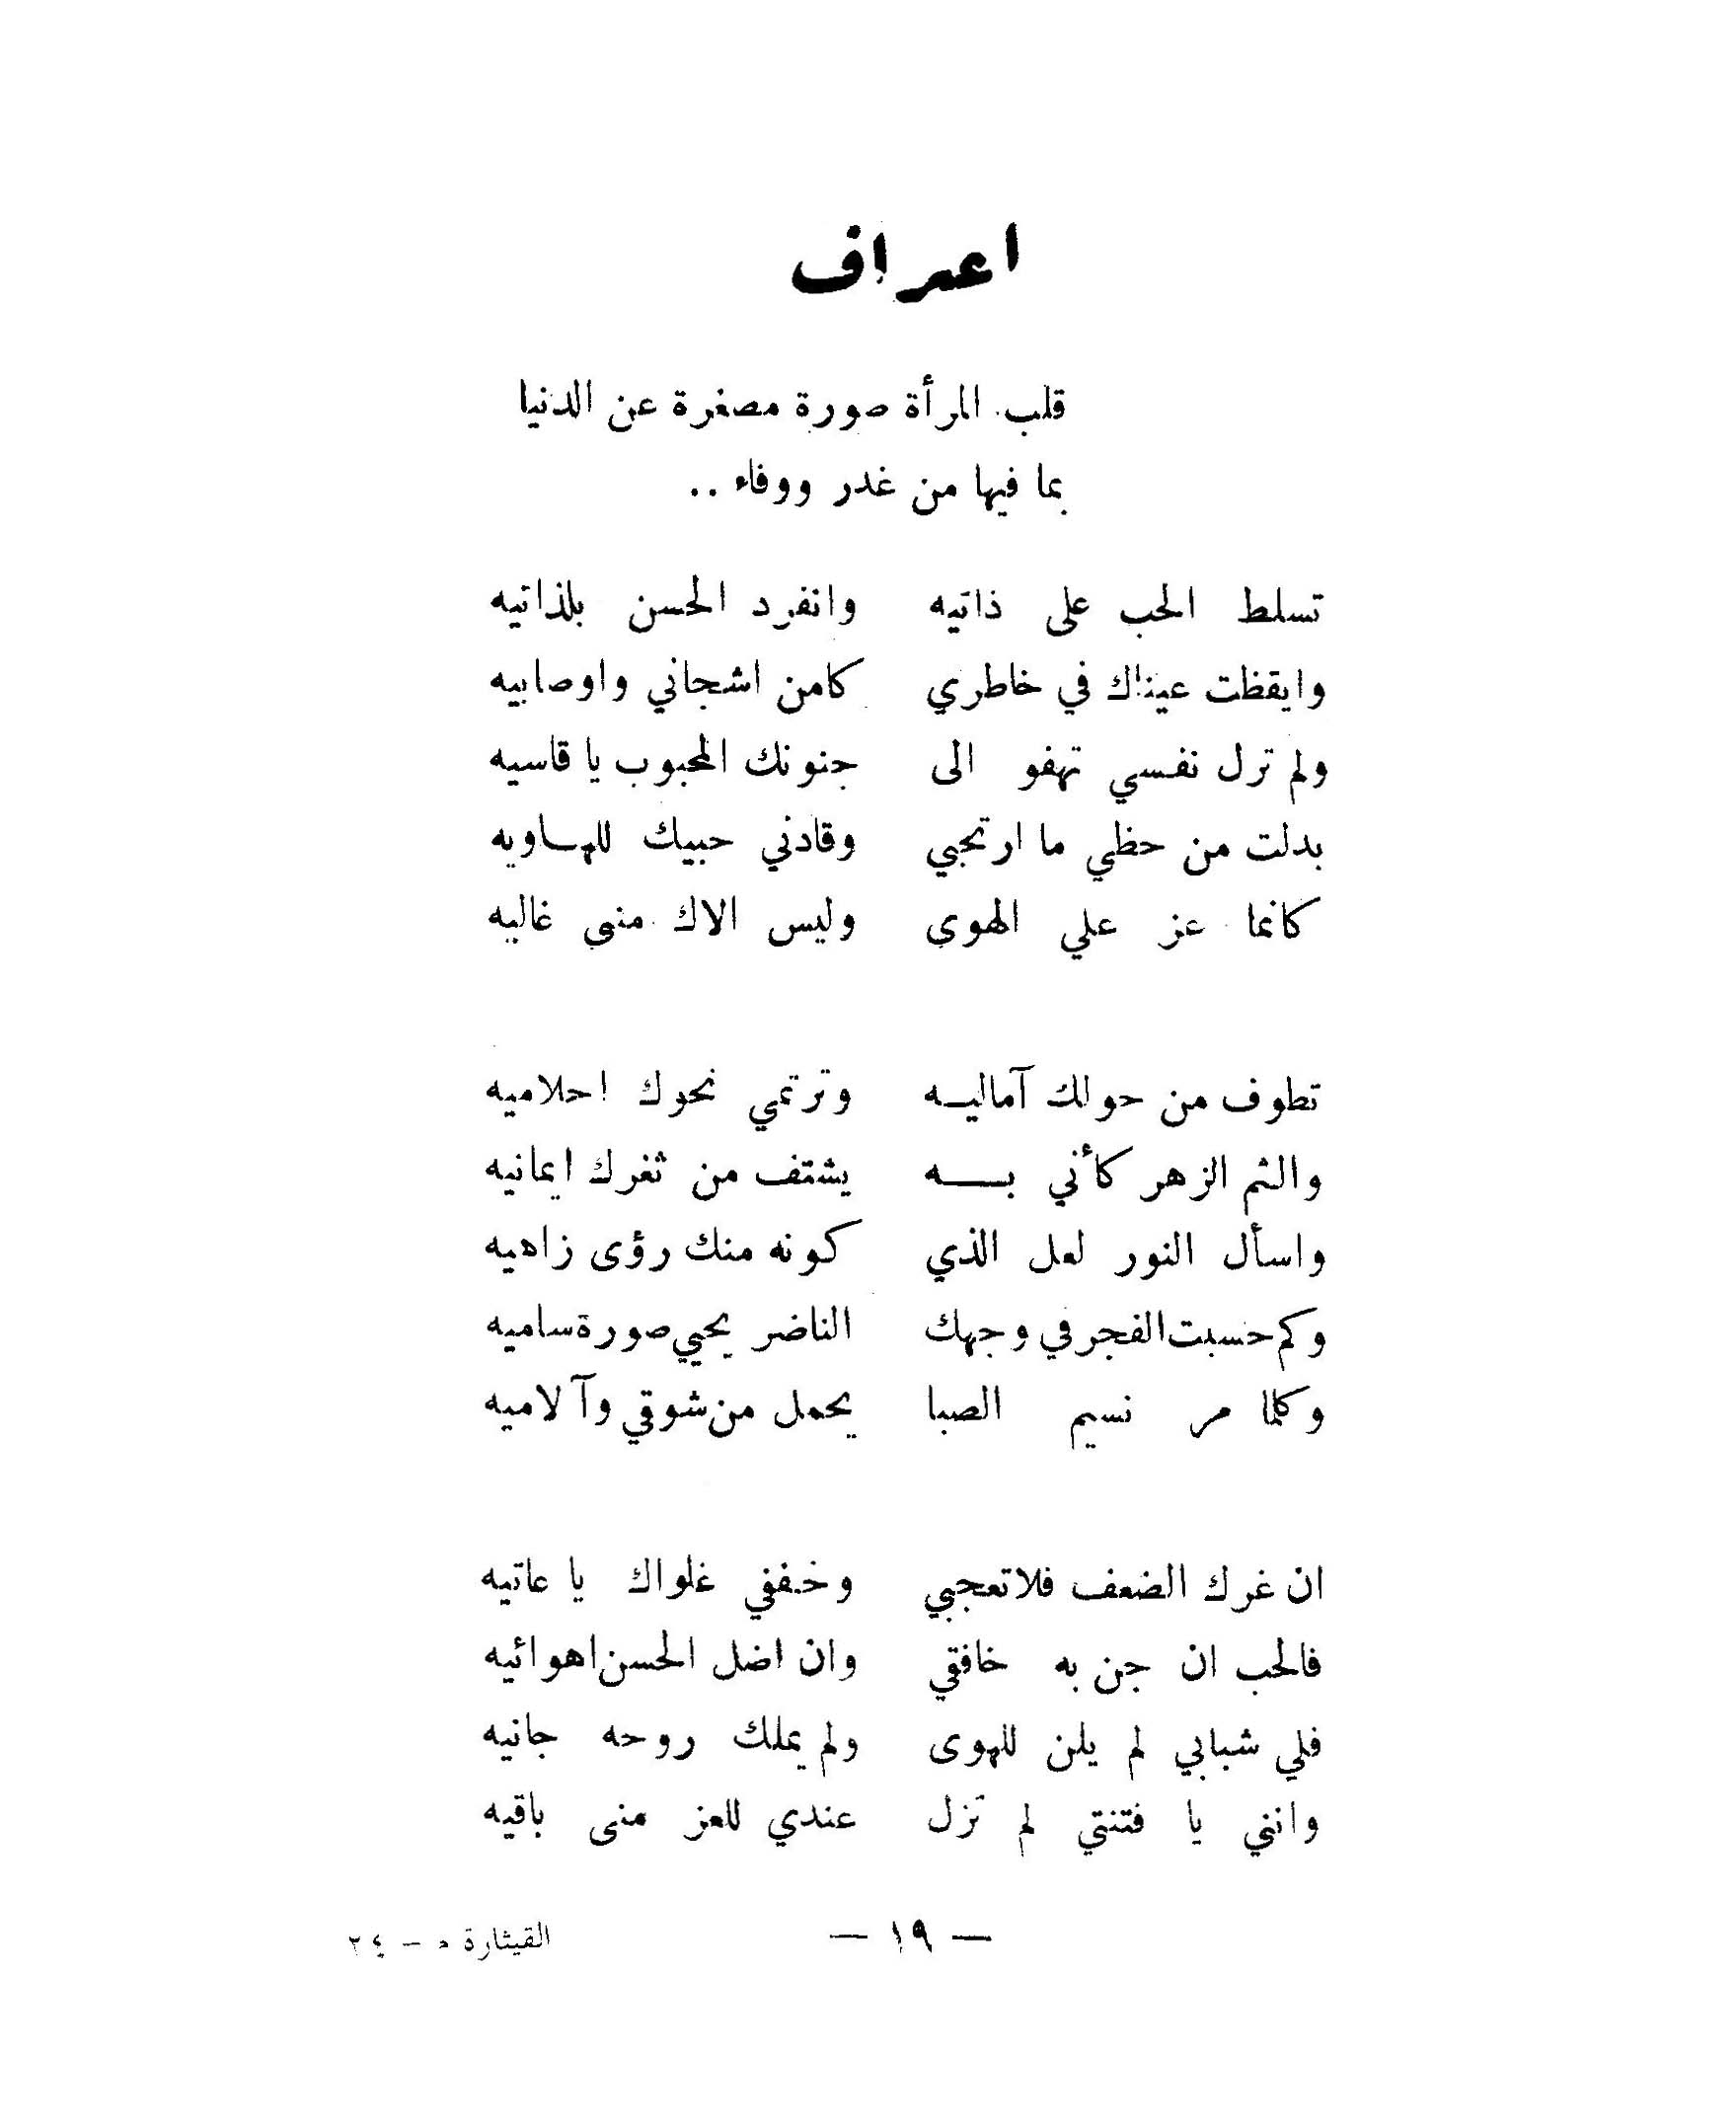 اعتراف
قلب المرأة صورة مصغرة عن الدنيا
بما فيها من غدر ووفاء ..
تسلط الحب على ذاتيه وانفرد الحسن بلذاتيه
وايقظت عيناك في خاطري كامن اشجاني واوصابيه
ولم تزل نفسي تهفو الى جنونك المحبوب يا قاسيه
بدلت من حظي ما ارتجي وقادني حبيك للهاويه
كانما عز علي الهوى وليس الاك منى غاليه
تطوف من حولك آماليه وترتمي نحوك احلاميه
والثم الزهر كأني به يشتف من ثغرك ايمانيه
واسأل النور لعل الذي كونه منك رؤى زاهيه
وكم حسبت الفجر في وجهك الناضر يحيي صورة ساميه
وكلما مر نسيم الصبا يحمل من شوقي وآلاميه
ان غرك الضعف فلا تعجبي وخففي غلواك يا عاتيه
فالحب ان جن به خافقي وان اضل الحسن اهوائيه
فلي شبابي لم يلن للهوى ولم يملك روحه جانيه
وانني يا فتنتي لم تزل عندي للعز منى باقيه
— ١٩ —
القيثارة م – ٢٤